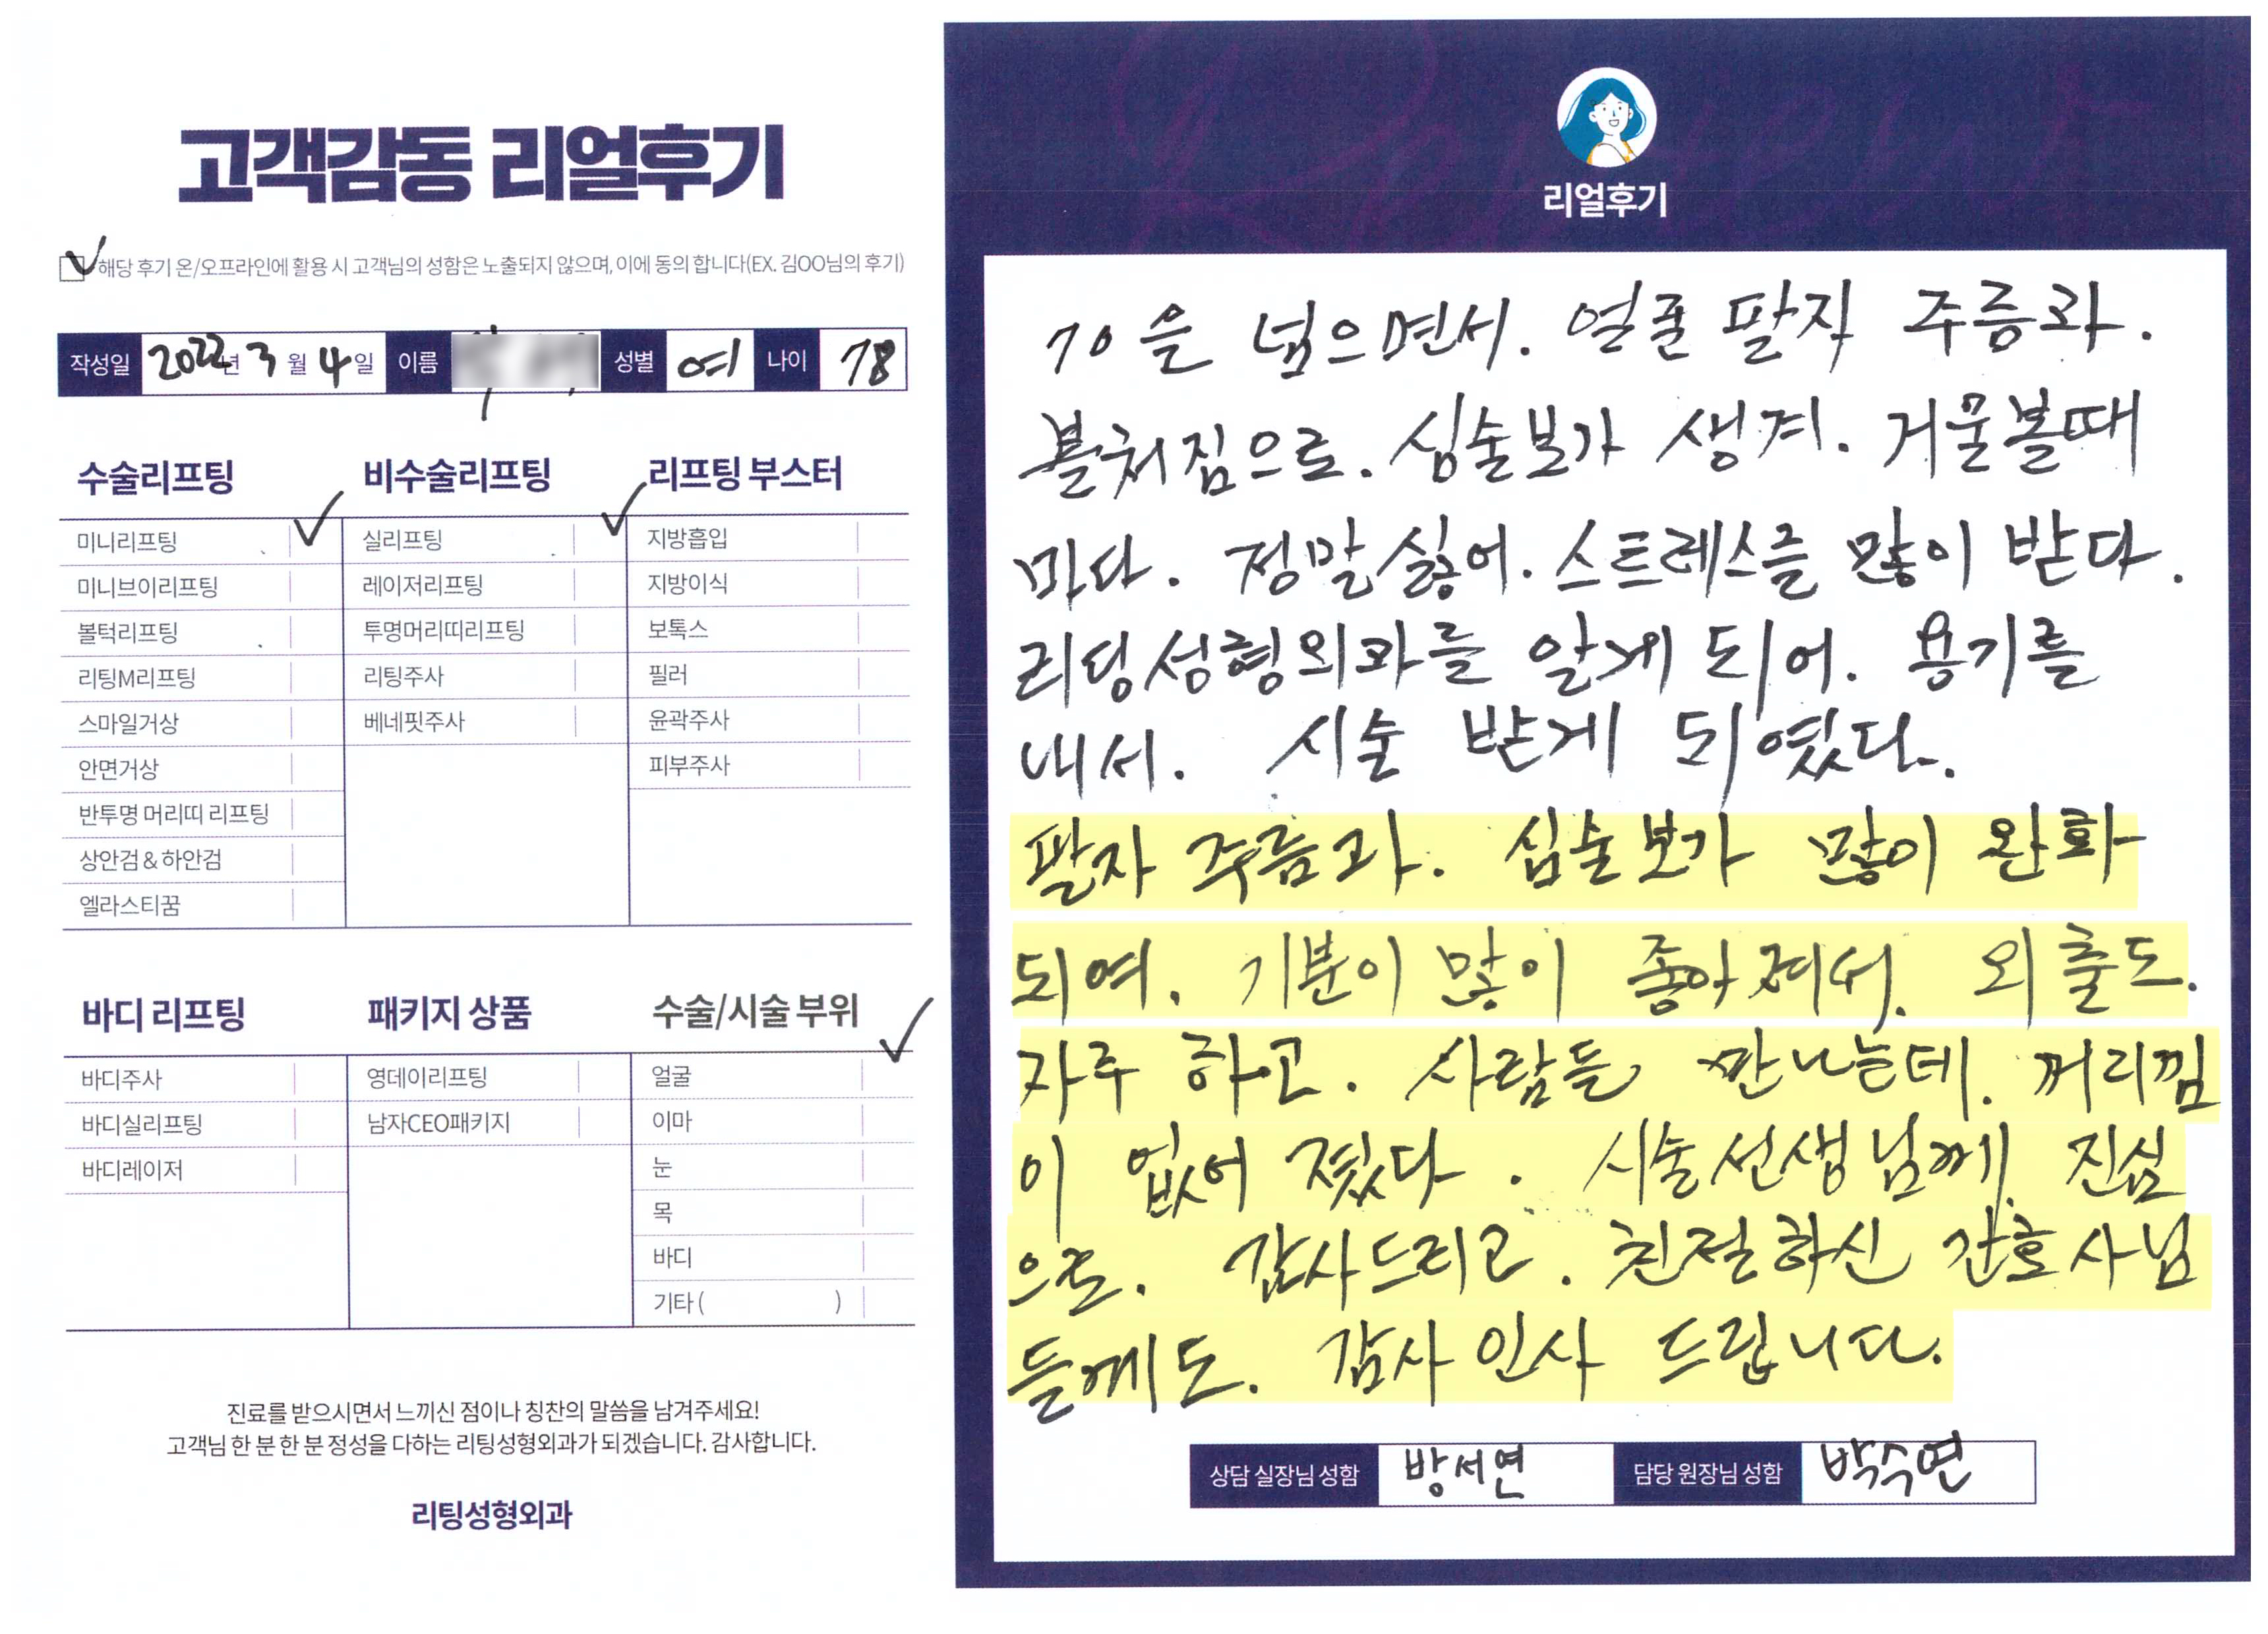 고객감동 리얼후기
해당 후기 온/오프라인에 활용 시 고객님의 성함은 노출되지 않으며, 이에 동의 합니다(EX. 김OO님의 후기)
작성일 2022년 3월 4일 이름 성별 여 나이 78
수술리프팅 비수술리프팅 리프팅 부스터
미니리프팅 실리프팅 지방흡입
미니브이리프팅 레이저리프팅 지방이식
볼턱리프팅 투명머리띠리프팅 보톡스
리팅M리프팅 리팅주사 필러
스마일거상 베네핏주사 윤곽주사
안면거상 피부주사
반투명 머리띠 리프팅
상안검&하안검
엘라스티꿈
바디 리프팅 패키지 상품 수술/시술 부위
바디주사 영데이리프팅 얼굴
바디실리프팅 남자CEO패키지 이마
바디레이저 눈
목
바디
기타( )
진료를 받으시면서 느끼신 점이나 칭찬의 말씀을 남겨주세요!
고객님 한 분 한 분 정성을 다하는 리팅성형외과가 되겠습니다. 감사합니다.
리팅성형외과
리얼후기
70을 넘으면서. 얼굴 팔자 주름과.
볼처짐으로. 심술보가 생겨. 거울볼때
마다. 정말싫어. 스트레스를 많이 받다.
리딩성형외과를 알게 되어. 용기를
내서. 시술 받게 되였다.
팔자 주름과. 심술보가 많이 완화
되여. 기분이 많이 좋아져서. 외출도.
자주 하고. 사람들 만나는데. 꺼리낌
이 없어 졌다. 시술선생님께 진심
으로. 감사드리고. 친절하신 간호사님
들께도. 감사인사 드립니다.
상담 실장님 성함 방서연 담당 원장님 성함 박수연